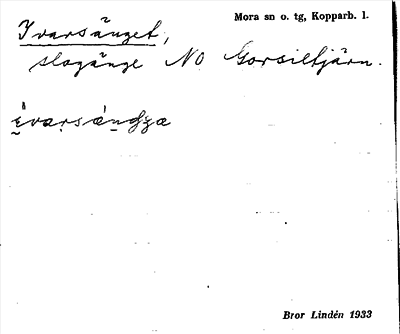 Mora sn o. tg, Kopparb. l.
Ivarsänget,
slogänge NO Gorsiltjärn.
Bror Lindén 1933